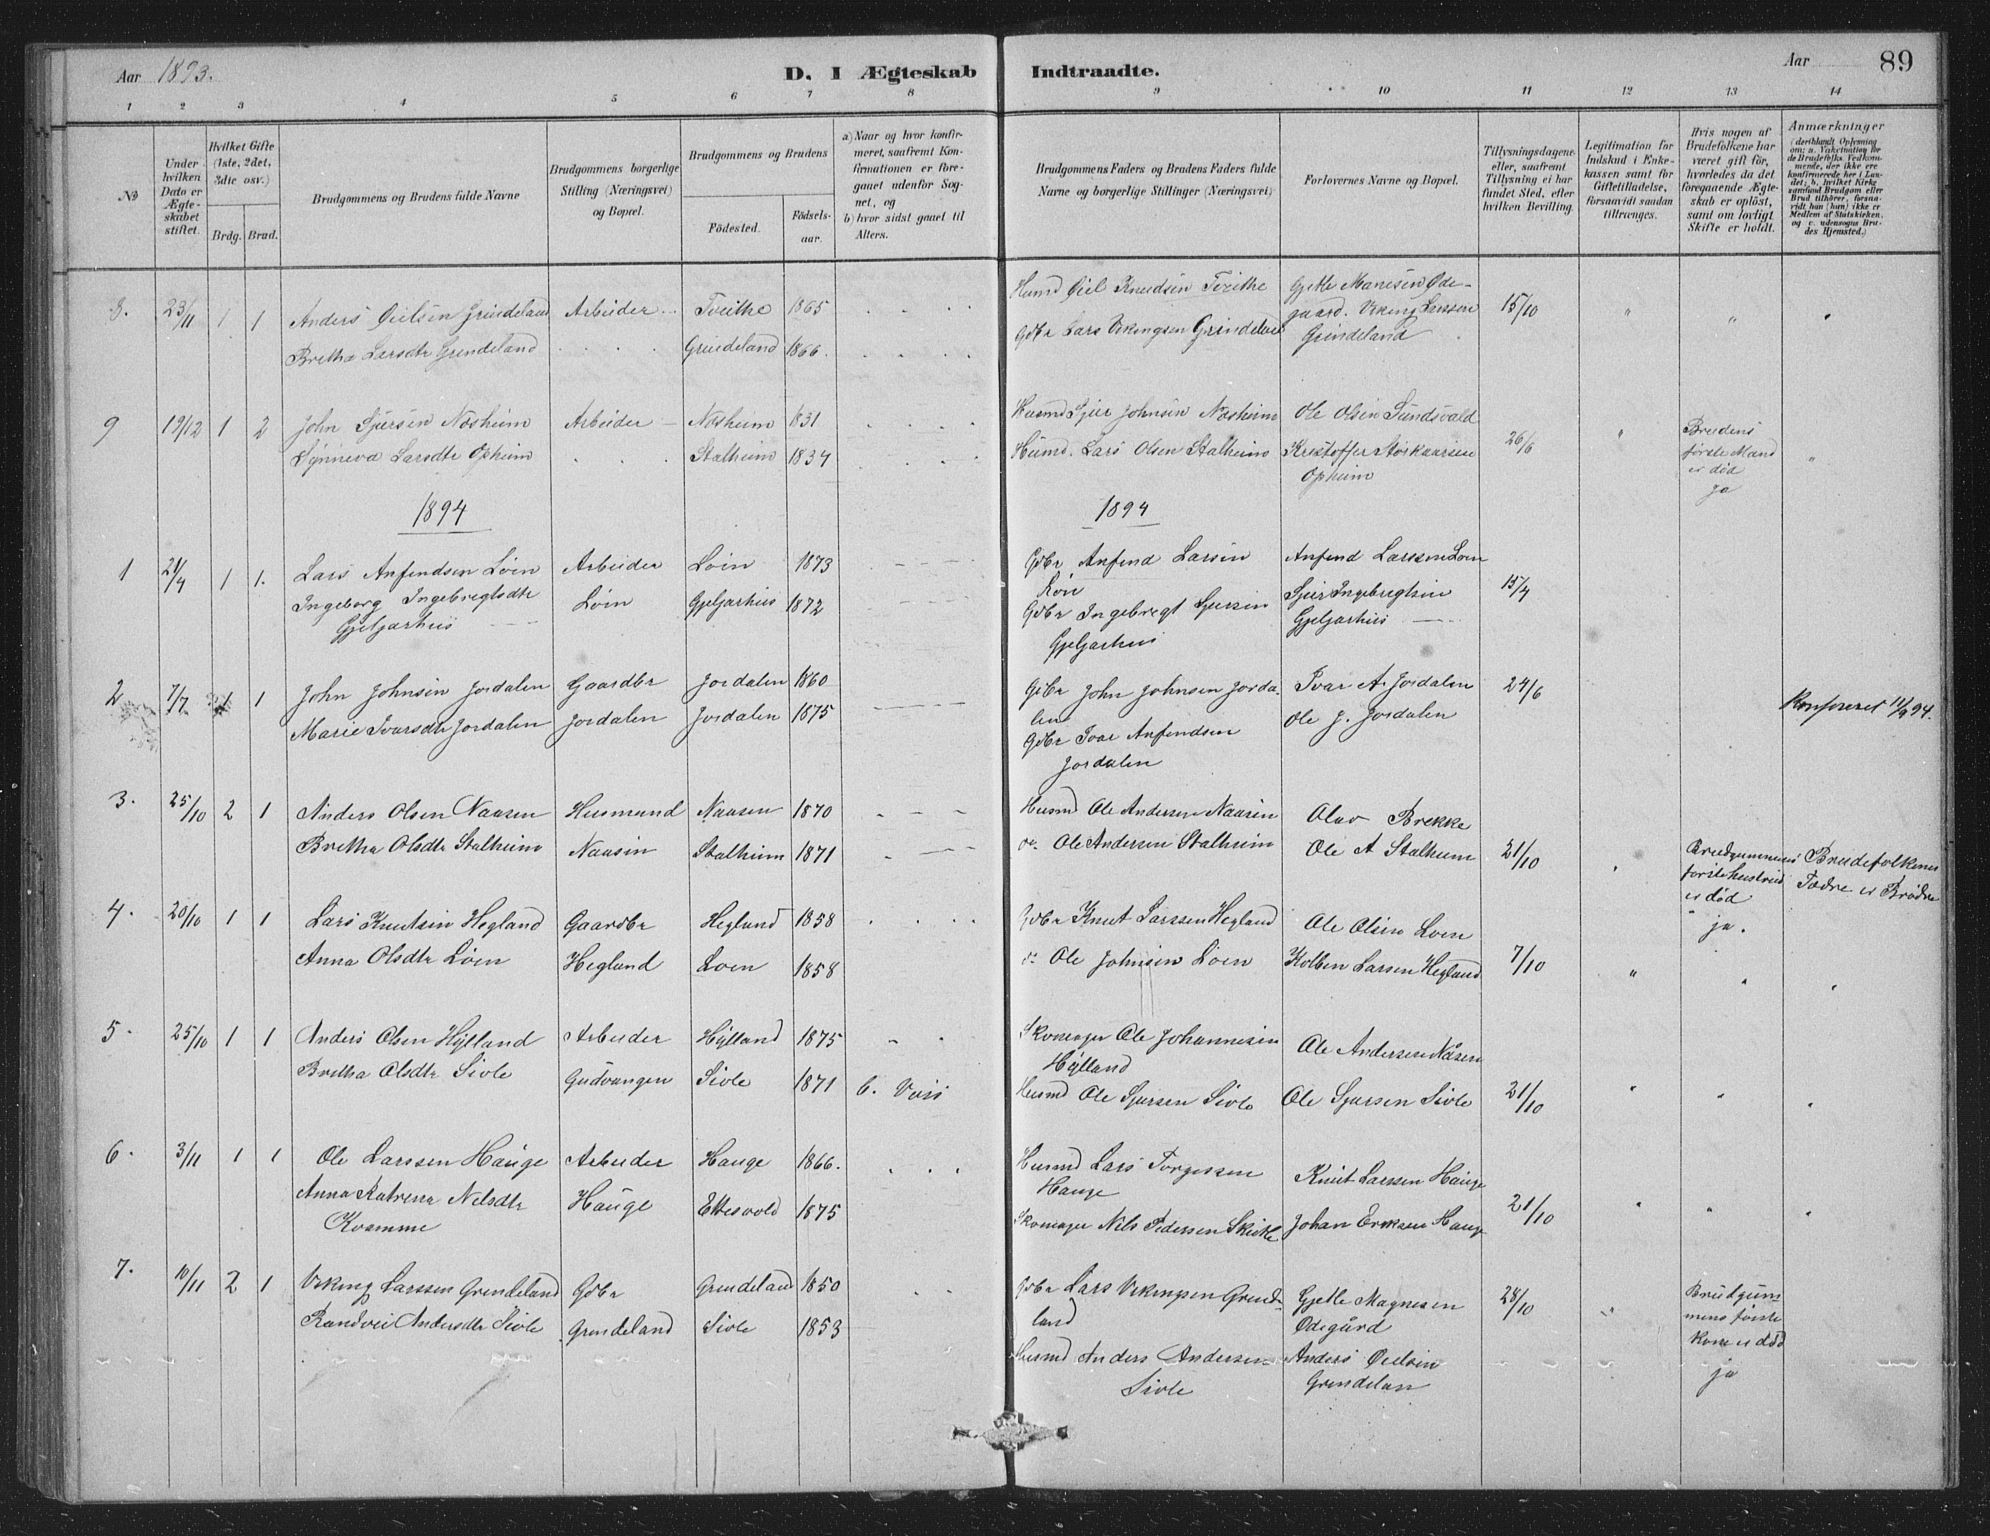 Aar 1893.
D. I Ægteskab Indtraadte.
Aar
89
1 2 3 4 5 6 7 8 9 10 11 12 13 14
No
Under hvilken Dato er Ægteskabet stiftet.
Hvilket Gifte (1ste, 2det, 3die osv.)
Brdg. Brud.
Brudgommens og Brudens fulde Navne
Brudgommens borgerlige Stilling (Næringsvei) og Bopæl.
Brudgommens og Brudens
Födested.
Födselsaar.
a) Naar og hvor konfirmeret, saafremt Konfirmationen er foregaaet udenfor Sognet, og
b) hvor sidst gaaet til Alters.
Brudgommens Faders og Brudens Faders fulde Navne og borgerlige Stillinger (Næringsvei)
Forlovernes Navne og Bopæl.
Tillysningsdagene eller, saafremt Tillysning ei har fundet Sted, efter hvilken Bevilling.
Legitimation for Indskud i Enkekassen samt for Giftetilladelse, forsaavidt saadan tiltrænges.
Hvis nogen af Brudefolkene har været gift för, hvorledes da det foregaaende Ægteskab er oplöst, samt om lovligt Skifte er holdt.
Anmærkninger
8. 23/11 1 1 Anders Oielsen Grindeland Arbeider Tveithe 1865 Husmd Oiel Knudsen Tveithe Gjetle Manesen Øde-
gaard. Viking Larssen 15/10
Bretha Larsdtr Grindeland Grindeland 1866. Gdbr Lars Vikingsen Grindeland Grindeland
9 19/12 1 2 John Sjursen Næsheim Arbeider Næsheim 1831 Husmd Sjur Johnsen Næsheim Ole Olsen Sundsvald 26/6 Brudens
Synneva Larsdtr Opheim Stalheim 1834 Husmd. Lars Olsen Stalheim Kristoffer Opheim
første Mand
er død
ja
1894 1894
1 21/4 1 1. Lars Anfindsen Löen Arbeider Löin 1873 Gdbr Anfind Larsen Anfind Larssen Loen 15/4
Ingeborg Ingebregtsdtr Löin Gjeljarhus 1872 Gdbr Ingebregt Sjursen Sjur Ingebregtsen
Gjeljarhus Gjeljarhus Gjeljarhus
2 7/7 1 1 John Johnsen Jordalen Gaardbr Jordalen 1860 Gdbr John Johnsen Jorda- Ivar A. Jordalen 24/6
len
Marie Ivarsdtr Jordalen Jordalen Jordalen 1875 Gdbr Ivar Anfindsen Ole J. Jordalen
Jordalen
3. 25/10 2 1 Anders Olsen Naasen Husmand Naasen 1870 Husmd Ole Andersen Naasen Olav Brekke 21/10
Bretha Olsdtr Stalheim Naasen Stalheim 1871 do. Ole Andersen Stalheim Ole A Stalheim
Brudgummens
første hustru
er død
ja.
Brudefolkenes
Fædre er Brødre
4. 20/10 1 1 Lars Knutsen Hegland Gaardbr Hegland 1858 Gdbr Knut Larssen Hegland Ole Olsen Loen
Anna Olsdtr Löen Hegland Loen 1858 do Ole Johnsen Loen Kolben Larsen Hegland 7/10
5. 25/10 1 1 Anders Olsen Hylland Arbeider Hylland 1875 Skomager Ole Johannesen
Hylland Ole Andersen Nåsen
Bretha Olsdtr Sivle Gudvangen Sivle 1871 Husmd Ole Sjursen Sivle Ole Sjursen Sivle 21/10
6. 3/11 1 1 Ole Larssen Hauge Arbeider Hauge 1866. Husmd Lars Torgersen
Hauge Knut Larssen Hauge
Anna Katrina Nelsdtr Hauge 1875 Skomager Nils Pedersen Johan Eriksen Hauge 21/10
Kvamme
7. 10/11 2 1 Viking Larssen Grindeland Gdbr Grindeland 1850 Gdbr Lars Vikingsen Grinde-
land Gjetle Magnesen
Ødegård 28/10
Randvei Andersdtr Sivle Grindeland Sivle 1853 Husmd Anders Andersen
Sivle Anders Oielsen
Grindelan
Brudgum-
mens første
kone er død
ja